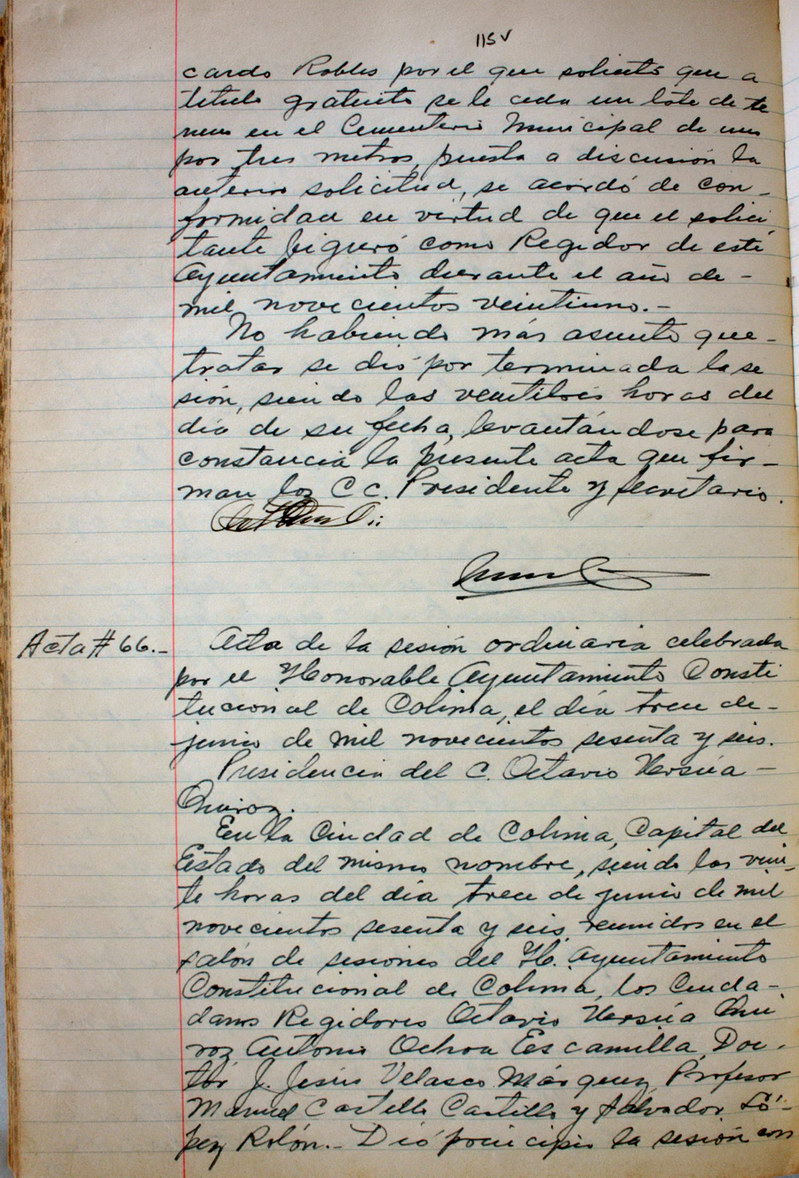 115 v
cardo Robles por el que solicita que a
titulo gratuito se le ceda un lote de te
rreno en el Cementerio Municipal de uno
por tres metros, puesta a discusión la
anterior solicitud, se acordó de con-
formidad en virtud de que el solici
tante figuró como Regidor de este
Ayuntamiento durante el año de-
mil novecientos veintiuno.-
No habiendo más asunto que-
tratar se dió por terminada la se
sión, siendo las veintitres horas del
día de su fecha, levantándose para
constancia la presente acta que fir-
man los CC. Presidente y Secretario.
Acta # 66.- Acta de la sesión ordinaria celebrada
por el Honorable Ayuntamiento Consti
tucional de Colima, el día trece de-
junio de mil novecientos sesenta y seis.
Presidencia del C. Octavio Versúa-
Quiroz.
En la Ciudad de Colima, Capital del
Estado del mismo nombre, siendo las vein-
te horas del día trece de junio de mil
novecientos sesenta y seis, reunidos en el
salón de sesiones del H. Ayuntamiento
Constitucional de Colima, los Ciuda-
danos Regidores Octavio Versúa Qui
roz Antonio Ochoa Escamilla, Doc-
tor J. Jesús Velasco Márquez, Profesor
Manuel Castello Castillo y Salvador Ló-
pez Rolón.- Dió principio la sesión con